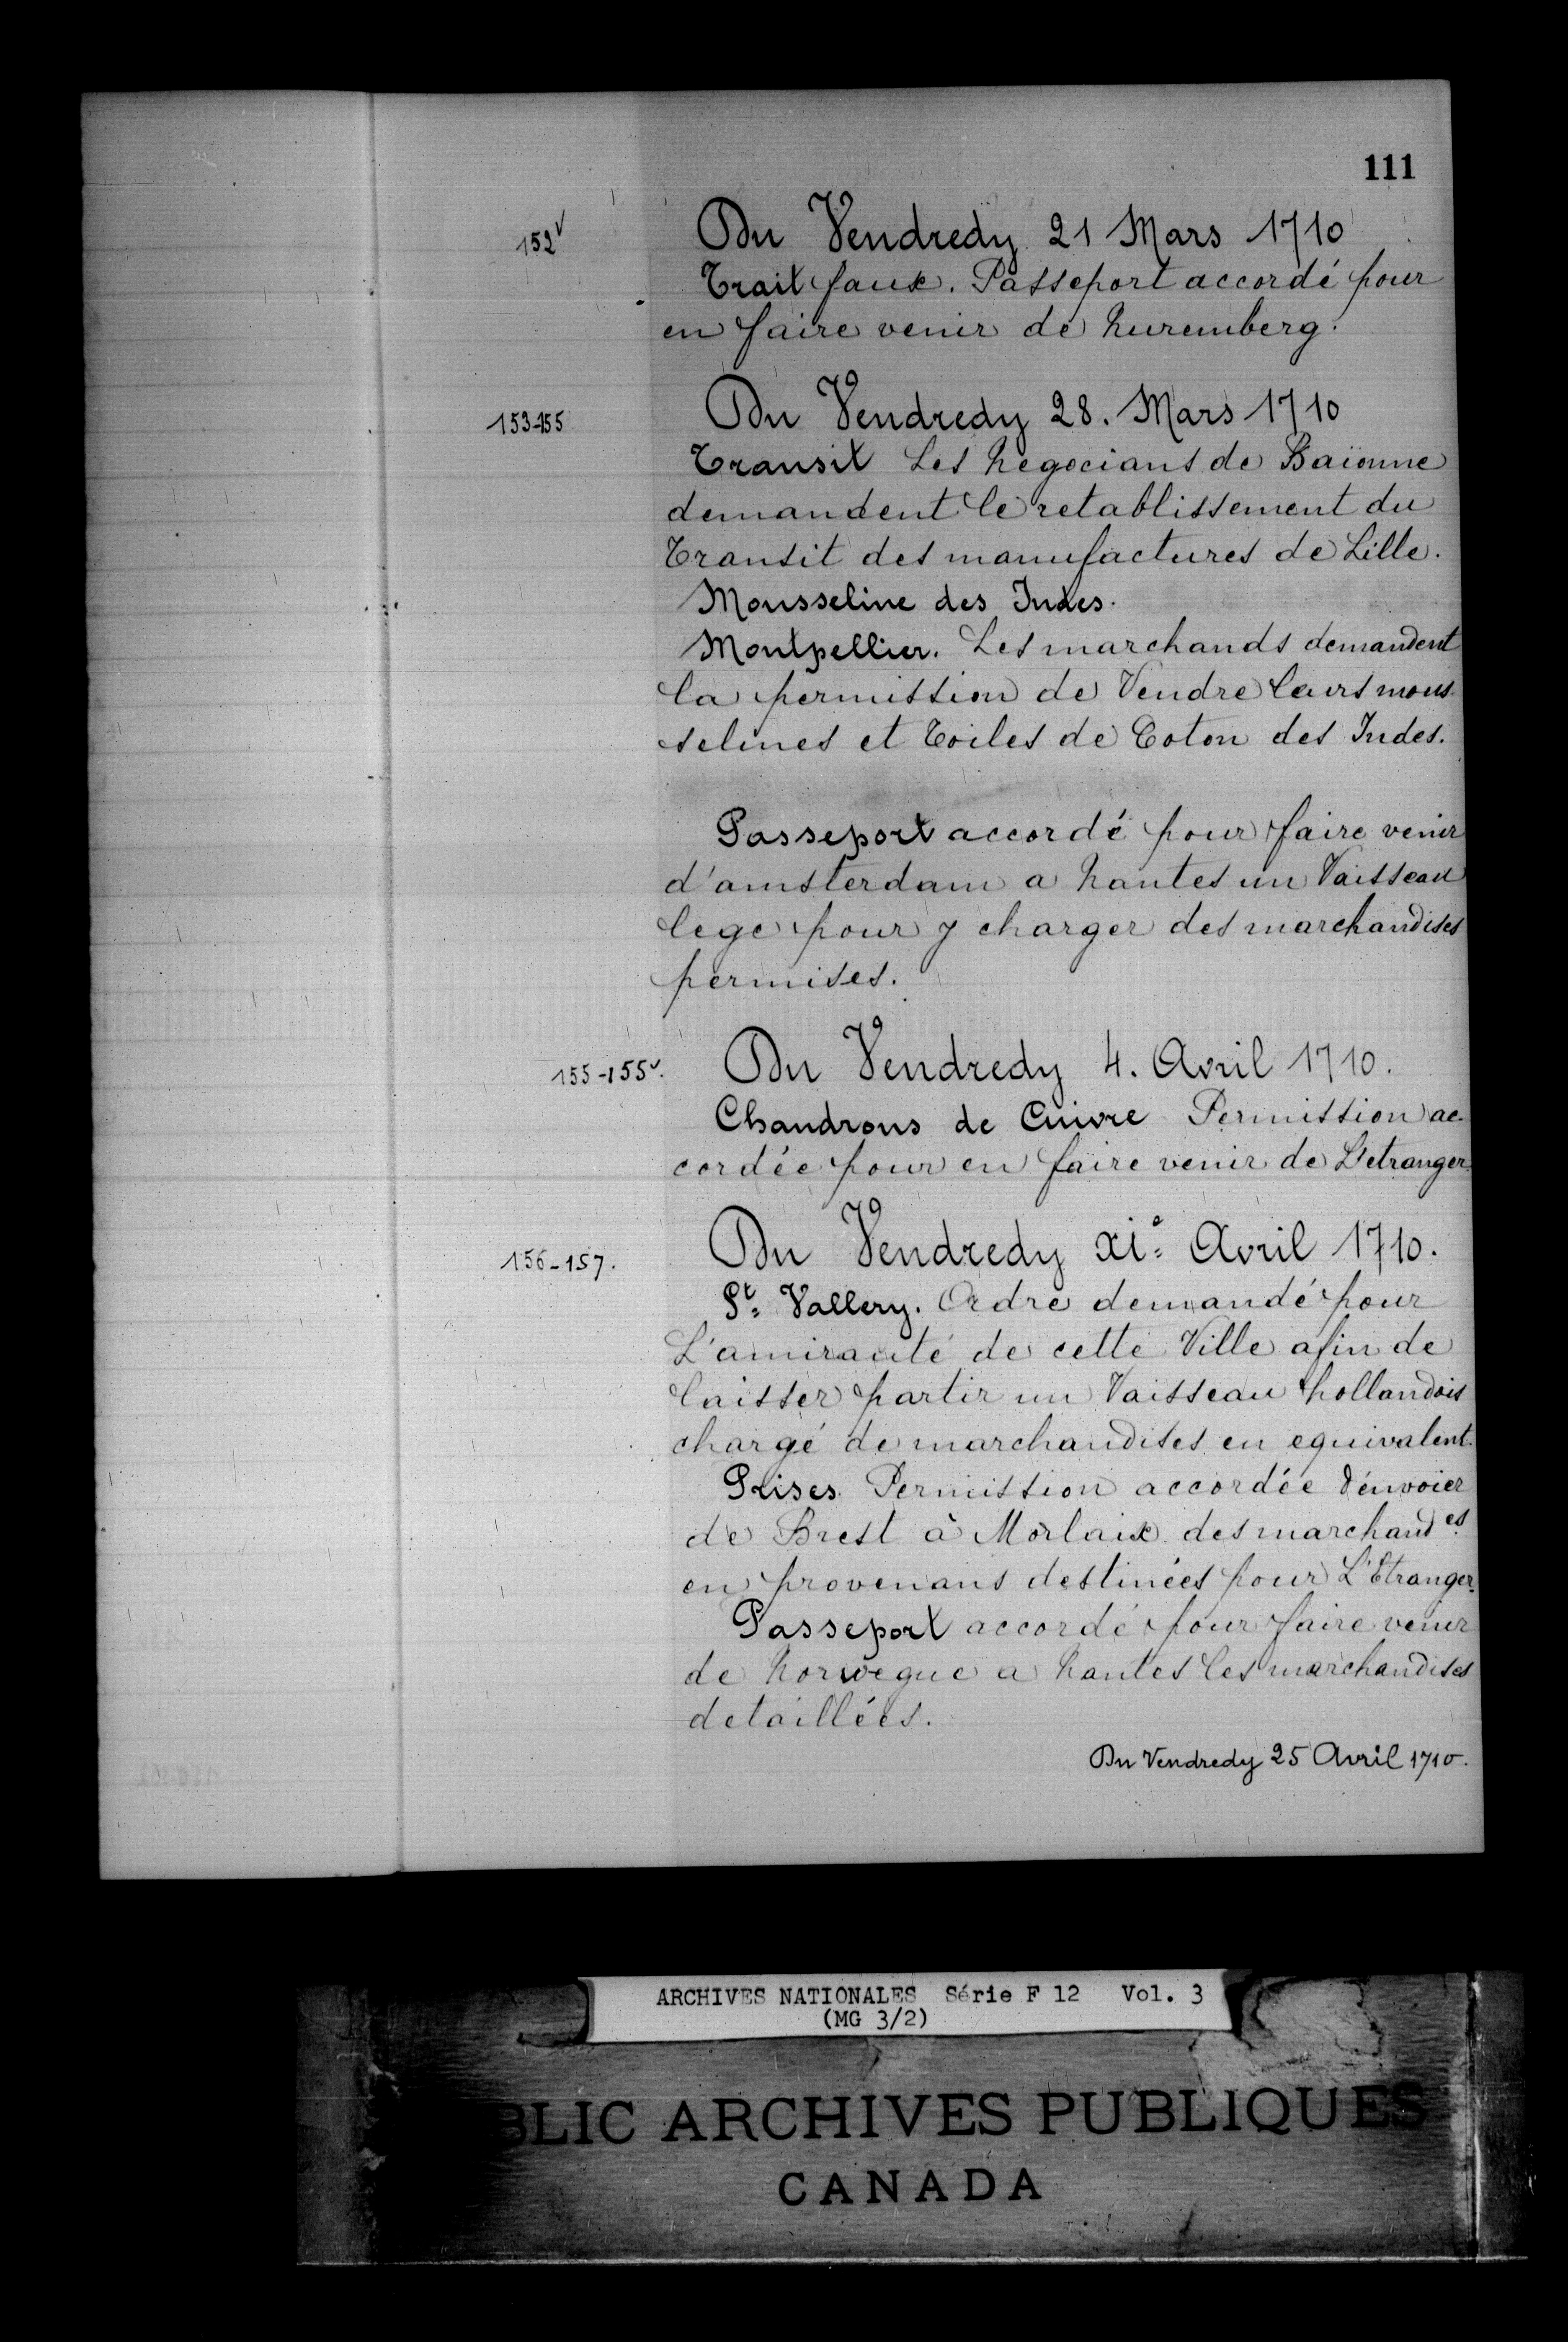 111
152v Du Vendredy 21 Mars 1710
Trait faux. Passeport accordé pour
en faire venir de Nuremberg.
153-155 Du Vendredy 28. Mars 1710
Transit Les Negocians de Baïonne
demandent le retablissement du
Transit des manufactures de Lille.
Mousseline des Indes.
Montpellier. Les marchands demandent
la permission de Vendre leurs mous-
selines et Toiles de Coton des Indes.
Passeport accordé pour faire venir
d'amsterdam a Nantes un Vaisseau
lege pour y charger des marchandises
permises.
155-155v. Du Vendredy 4. Avril 1710.
Chaudrons de Cuivre Permission ac-
cordée pour en faire venir de L'etranger.
156-157. Du Vendredy xie Avril 1710.
St. Vallery. Ordre demandé pour
L'amirauté de cette Ville afin de
laisser partir un Vaisseau hollandois
chargé de marchandises en equivalent.
Prises. Permission accordée d'envoier
de Brest à Morlaix des marchandes
en provenans destinées pour L'Etranger.
Passeport accordé pour faire venir
de Norwegue a Nantes les marchandises
detaillées.
Du Vendredy 25 Avril 1710.
ARCHIVES NATIONALES Série F 12 Vol. 3
(MG 3/2)
BLIC ARCHIVES PUBLIQUES
CANADA